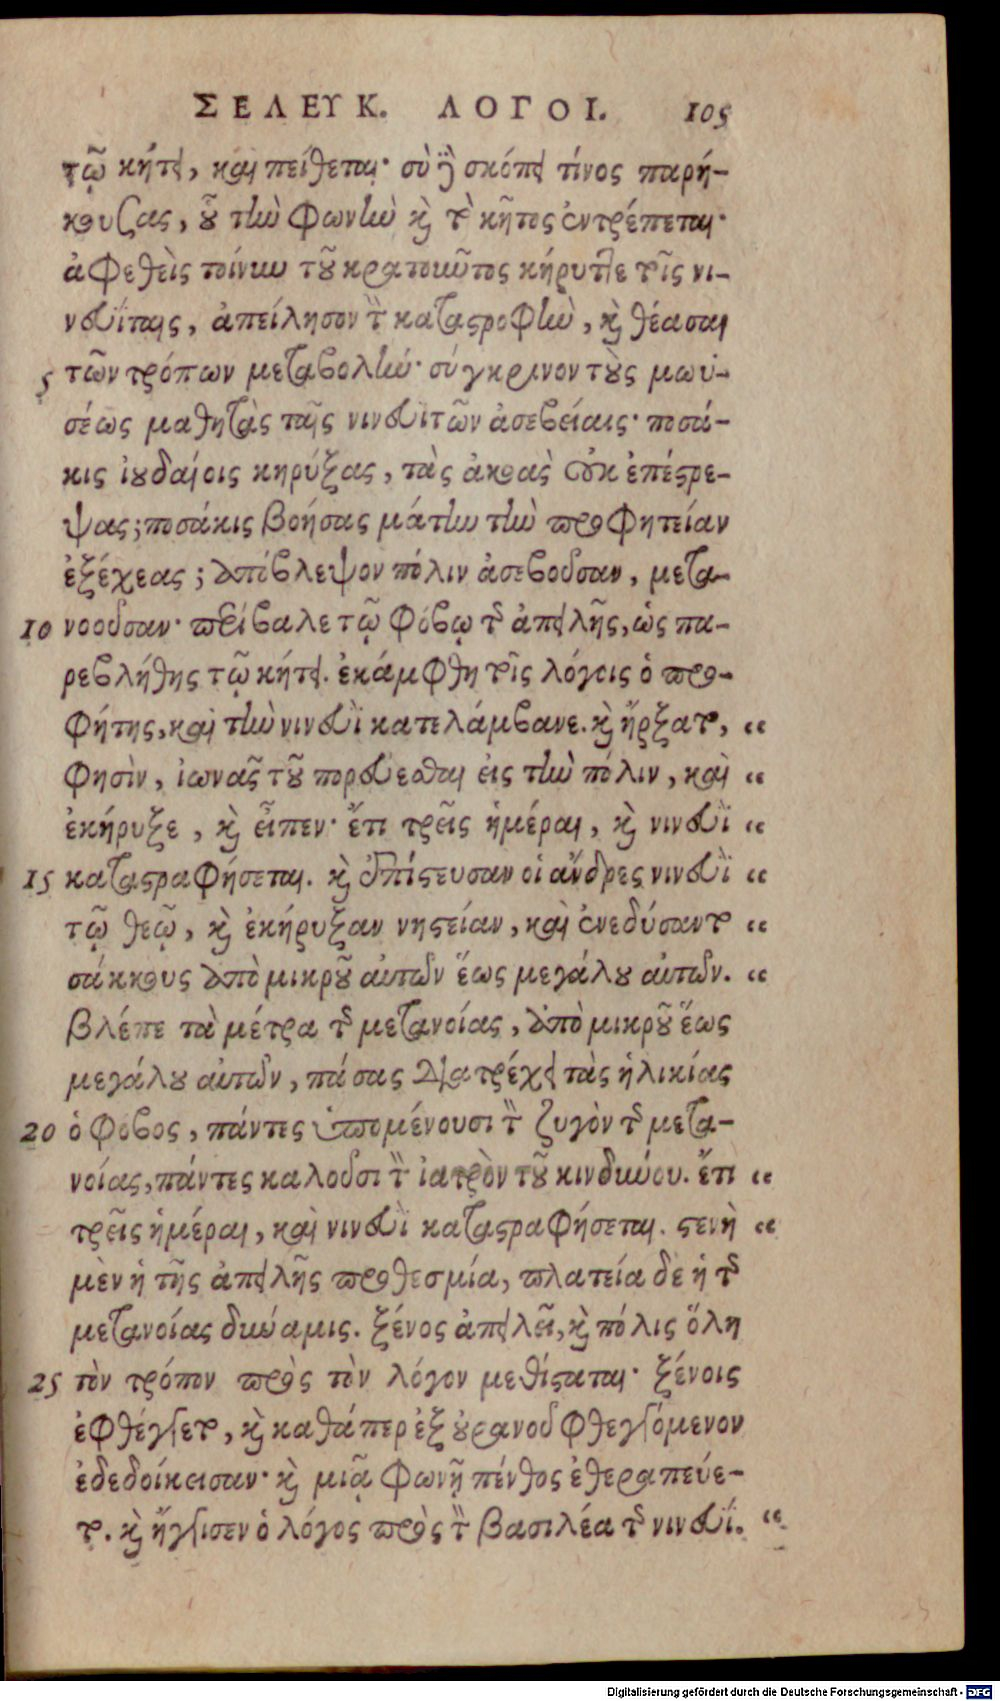 ΣΕΛΕΥΚ. ΛΟΓΟΙ. 105
τῷ κήτει, καὶ πείθεται· σὺ δὲ σκόπει τίνος παρή-
κουσας, οὗ τὴν φωνὴν καὶ τὸ κῆτος ἐντρέπεται·
ἀφεθεὶς τοίνυν τοῦ κρατοῦντος κήρυττε τοῖς νι-
νευΐταις, ἀπείλησον τὴν καταστροφὴν, καὶ θέασαι
5 τῶν τρόπων μεταβολήν· σύγκρινον τοὺς μωυ-
σέως μαθητὰς ταῖς νινευιτῶν ἀσεβείαις· ποσά-
κις ἰουδαίοις κηρύξας, τὰς ἀκοὰς οὐκ ἐπέστρε-
ψας; ποσάκις βοήσας μάτην τὴν προφητείαν
ἐξέχεας; ἀπόβλεψον πόλιν ἀσεβοῦσαν, μετα-
10 νοοῦσαν· περίβαλε τῷ φόβῳ τῆς ἀπειλῆς, ὡς πα-
ρεβλήθης τῷ κήτει. ἐκάμφθη τοῖς λόγοις ὁ προ-
φήτης, καὶ τὴν νινευῒ κατελάμβανε. καὶ ἤρξατο, “
φησὶν, ἰωνᾶς τοῦ πορεύεσθαι εἰς τὴν πόλιν, καὶ “
ἐκήρυξε, καὶ εἶπεν· ἔτι τρεῖς ἡμέραι, καὶ νινευῒ “
15 καταστραφήσεται. καὶ ἐπίστευσαν οἱ ἄνδρες νινευῒ “
τῷ θεῷ, καὶ ἐκήρυξαν νηστείαν, καὶ ἐνεδύσαντο “
σάκκους ἀπὸ μικροῦ αὐτῶν ἕως μεγάλου αὐτῶν. “
βλέπε τὰ μέτρα τῆς μετανοίας, ἀπὸ μικροῦ ἕως
μεγάλου αὐτῶν, πάσας διατρέχει τὰς ἡλικίας
20 ὁ φόβος, πάντες ὑπομένουσι τὸν ζυγὸν τῆς μετα-
νοίας, πάντες καλοῦσι τὸν ἰατρὸν τοῦ κινδύνου. ἔτι “
τρεῖς ἡμέραι, καὶ νινευῒ καταστραφήσεται. στενὴ “
μὲν ἡ τῆς ἀπειλῆς προθεσμία, πλατεία δὲ ἡ τῆς
μετανοίας δύναμις. ξένος ἀπειλεῖ, καὶ πόλις ὅλη
25 τὸν τρόπον πρὸς τὸν λόγον μεθίσταται· ξένοις
ἐφθέγγετο, καὶ καθάπερ ἐξ οὐρανοῦ φθεγγόμενον
ἐδεδοίκεισαν· καὶ μιᾷ φωνῇ πένθος ἐθεραπεύε-
το. καὶ ἤγγισεν ὁ λόγος πρὸς τὸν βασιλέα τῆς νινευΐ. “
Digitalisierung gefördert durch die Deutsche Forschungsgemeinschaft - DFG